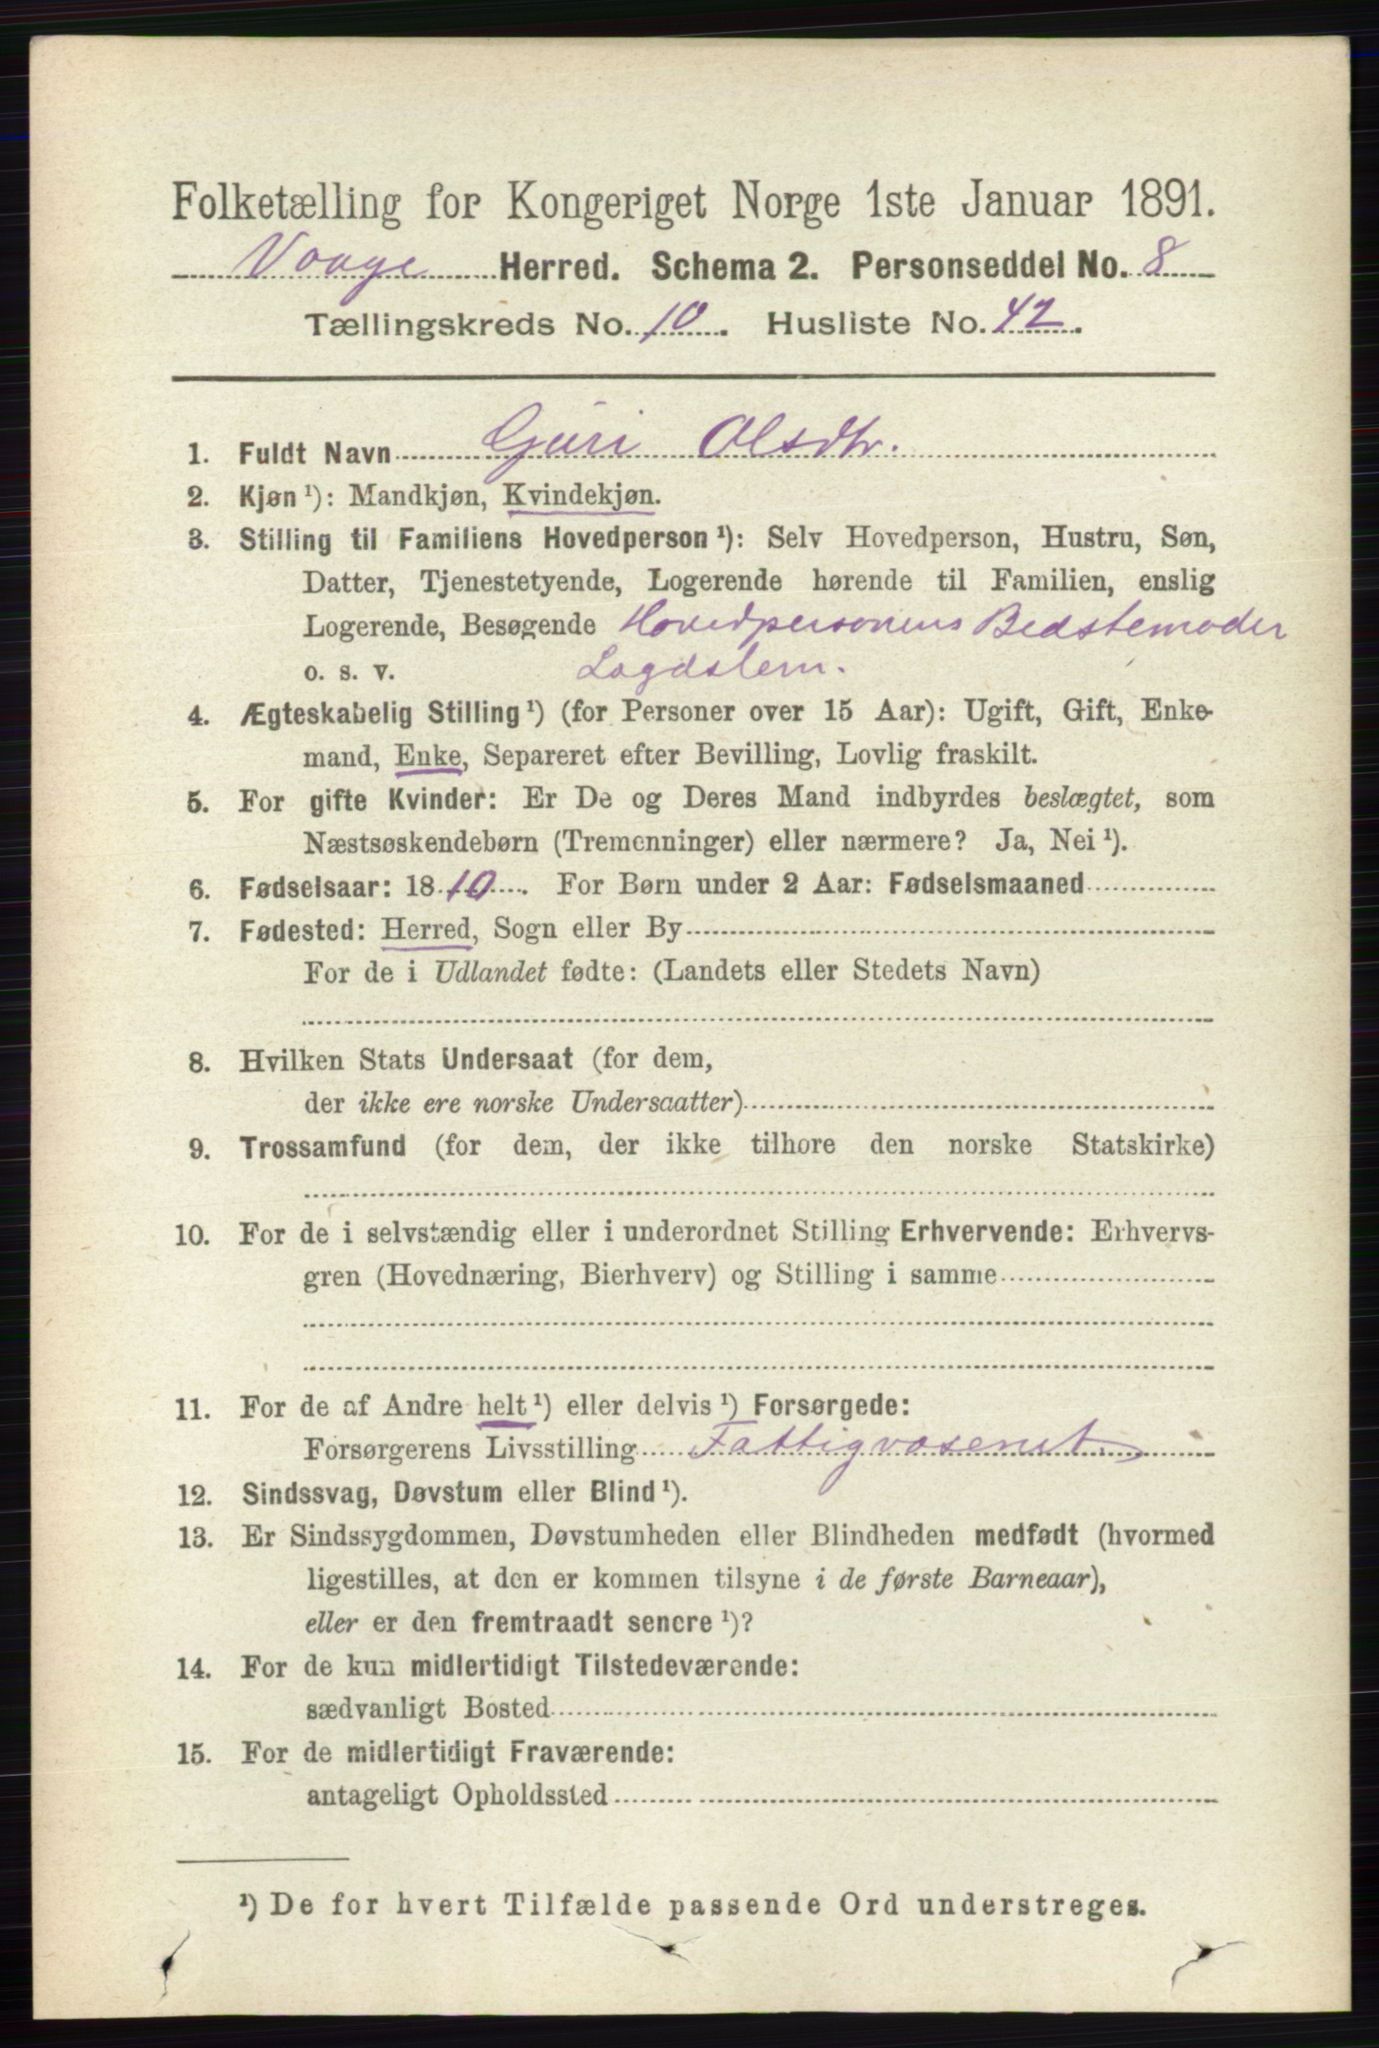 Folketælling for Kongeriget Norge 1ste Januar 1891.
Vaage Herred. Schema 2. Personseddel No. 8
Tællingskreds No. 10. Husliste No. 42.
1. Fuldt Navn Guri Olsdtr.
2. Kjøn ¹): Mandkjøn, Kvindekjøn.
3. Stilling til Familiens Hovedperson ¹): Selv Hovedperson, Hustru, Søn,
Datter, Tjenestetyende, Logerende hørende til Familien, enslig
Logerende, Besøgende Hovedpersonens Bedstemoder
o. s. v. Lægdslem.
4. Ægteskabelig Stilling ¹) (for Personer over 15 Aar): Ugift, Gift, Enke-
mand, Enke, Separeret efter Bevilling, Lovlig fraskilt.
5. For gifte Kvinder: Er De og Deres Mand indbyrdes beslægtet, som
Næstsøskendebørn (Tremenninger) eller nærmere? Ja, Nei ¹).
6. Fødselsaar: 1810. For Børn under 2 Aar: Fødselsmaaned
7. Fødested: Herred, Sogn eller By
For de i Udlandet fødte: (Landets eller Stedets Navn)
8. Hvilken Stats Undersaat (for dem,
der ikke ere norske Undersaatter)
9. Trossamfund (for dem, der ikke tilhøre den norske Statskirke)
10. For de i selvstændig eller i underordnet Stilling Erhvervende: Erhvervs-
gren (Hovednæring, Bierhverv) og Stilling i samme
11. For de af Andre helt ¹) eller delvis ¹) Forsørgede:
Forsørgerens Livsstilling Fattigvæsenet
12. Sindssvag, Døvstum eller Blind ¹).
13. Er Sindssygdommen, Døvstumheden eller Blindheden medfødt (hvormed
ligestilles, at den er kommen tilsyne i de første Barneaar),
eller er den fremtraadt senere ¹)?
14. For de kun midlertidigt Tilstedeværende:
sædvanligt Bosted
15. For de midlertidigt Fraværende:
antageligt Opholdssted
¹) De for hvert Tilfælde passende Ord understreges.